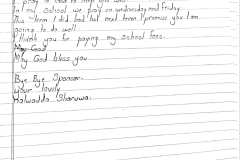 I pray to God to help you
In my school we pray on wednesday and Friday.
This term I did bad but next term I promise you I am
going to do well.
I thank you for paying my school fees.
May God
May God bless you
Bye Bye Sponsor.
your lovely
Nalwadda Sharuwa.